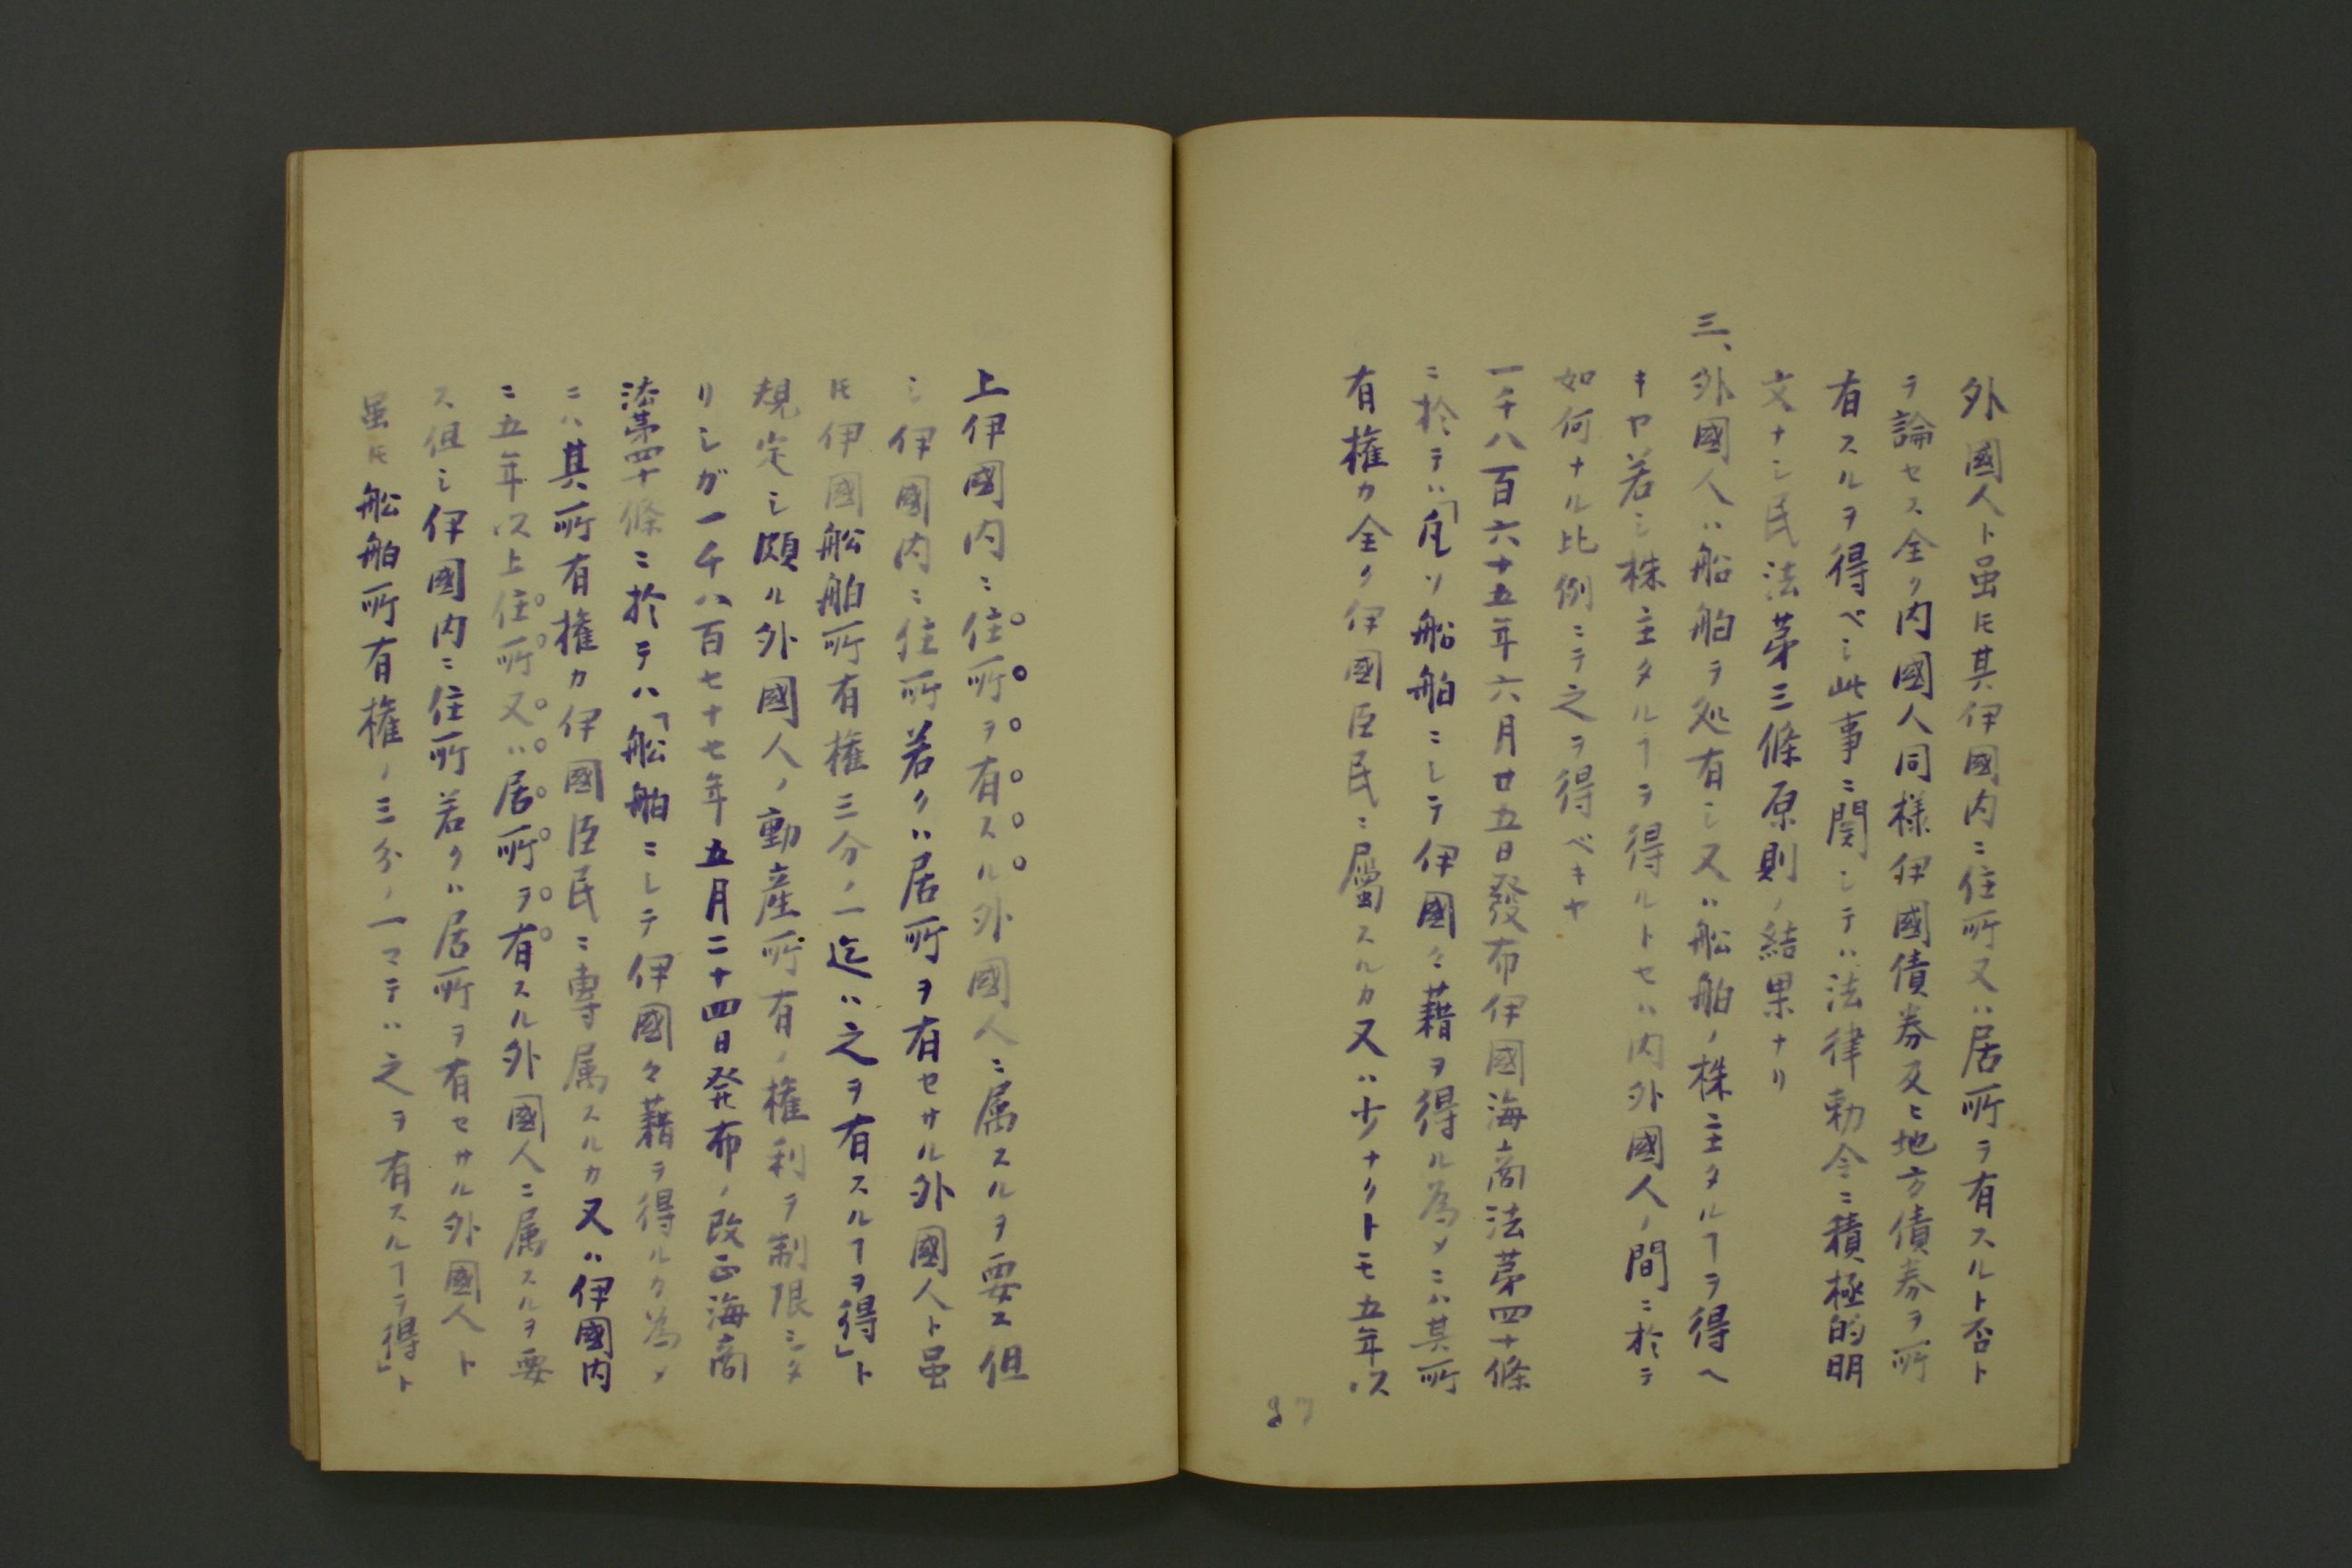 外國人ト虽𪜈其伊國内ニ住所又ハ居所ヲ有スルト否ト
ヲ論セス全ク内國人同様伊國債券及ヒ地方債券ヲ所
有スルヲ得ベシ此事ニ関シテハ法律勅令ニ積極的明
文ナシ民法第三條原則ノ結果ナリ
三、外國人ハ船舶ヲ処有シ又ハ舩舶ノ株主タルヿヲ得ヘ
キヤ若シ株主タルヿヲ得ルトセハ内外國人ノ間ニ於テ
如何ナル比例ニテ之ヲ得ベキヤ
一千八百六十五年六月廿五日發布伊國海商法第四十條
ニ於テハ「凡ソ船舶ニシテ伊國々藉ヲ得ル為メニハ其所
有権カ全ク伊國臣民ニ屬スルカ又ハ少ナクトモ五年以
97
上伊國内ニ住所ヲ有スル外國人ニ属スルヲ要ス但
シ伊國内ニ住所若クハ居所ヲ有セサル外國人ト虽
𪜈伊國舩舶所有権三分ノ一迄ハ之ヲ有スルヿヲ得」ト
規定シ頗ル外國人ノ動産所有ノ権利ヲ制限シタ
リシガ一千八百七十七年五月二十四日発布ノ改正海商
法第四十條ニ於テハ「舩舶ニシテ伊國々藉ヲ得ルカ為メ
ニハ其所有権カ伊國臣民ニ専属スルカ又ハ伊國内
ニ五年以上住所又ハ居所ヲ有スル外國人ニ属スルヲ要
ス但シ伊國内ニ住所若クハ居所ヲ有セサル外國人ト
虽𪜈舩舶所有権ノ三分ノ一マテハ之ヲ有スルヿヲ得」ト